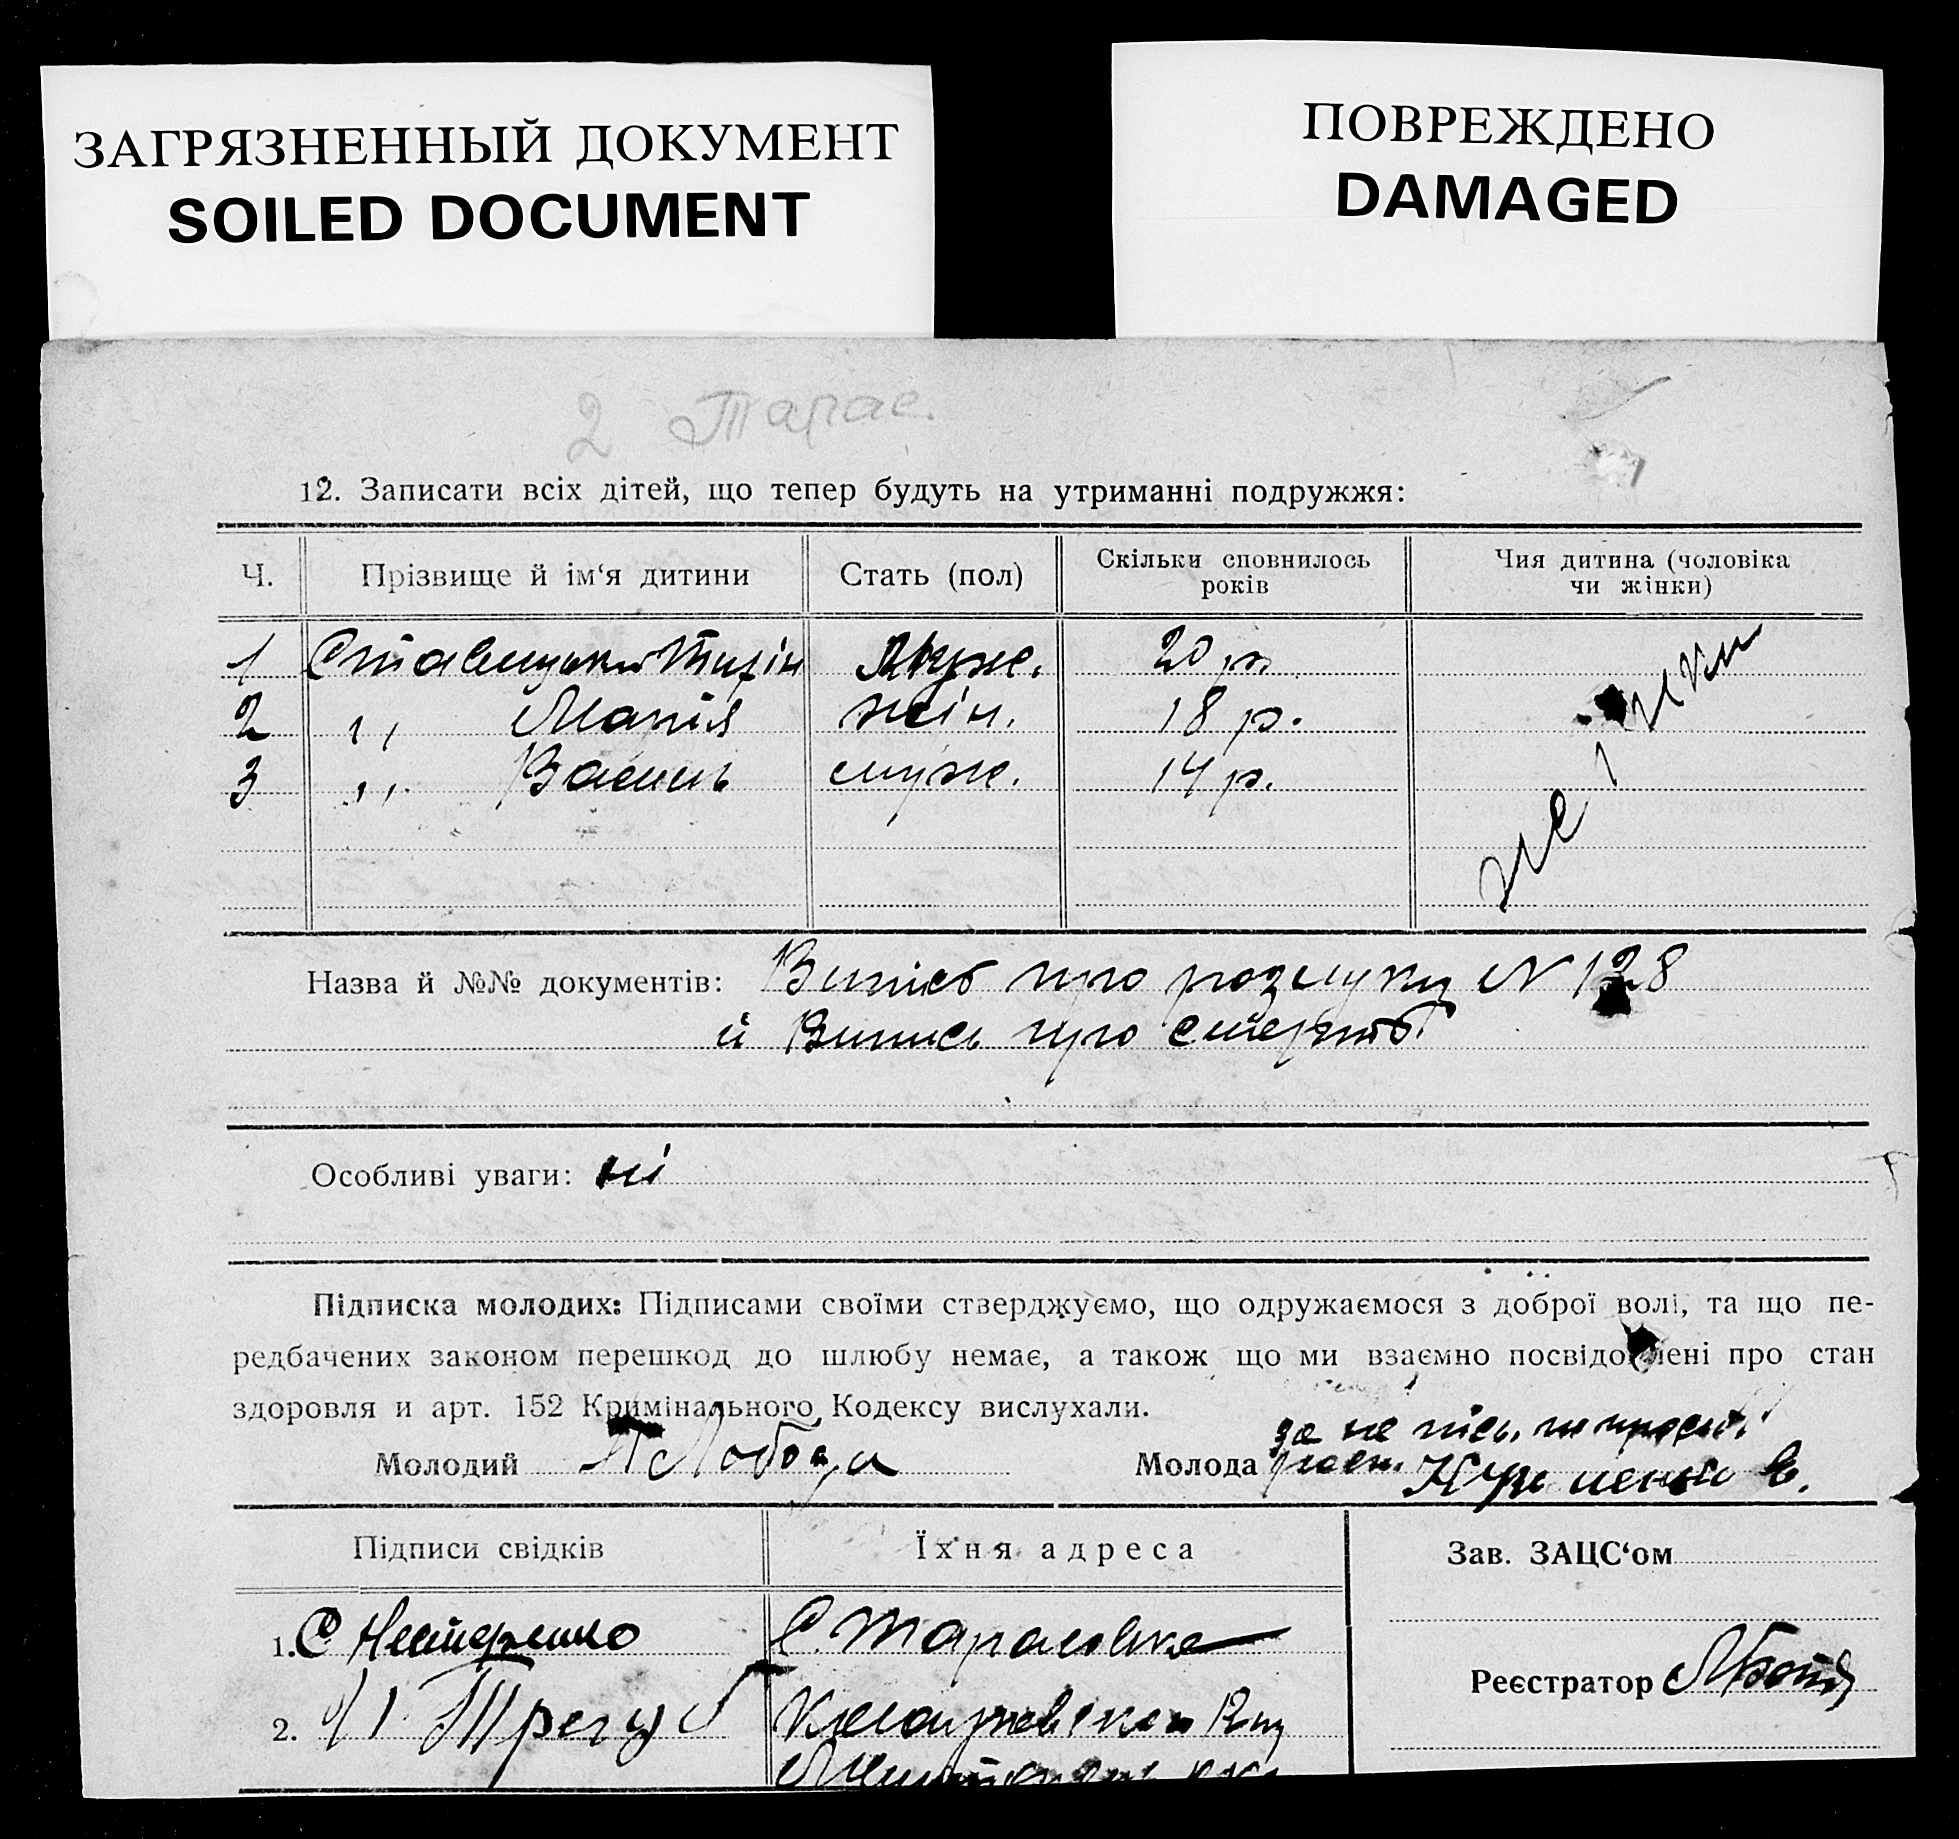 ЗАГРЯЗНЕННЫЙ ДОКУМЕНТ
SOILED DOCUMENT
ПОВРЕЖДЕНО
DAMAGED
2 Тарас.
12. Записати всіх дітей, що тепер будуть на утриманні подружжя:
Ч. Прізвище й ім‘я дитини Стать (пол) Скільки сповнилось років Чия дитина (чоловіка чи жінки)
1 муж. 20 р.
2 " Марія жін. 18 р.
3 " Василь муж. 14 р.
Назва й №№ документів: Випись про розлуку N 128
й Випись про смерть
Особливі уваги: ні
Підписка молодих: Підписами своїми стверджуємо, що одружаємося з доброї волі, та що пе-
редбачених законом перешкод до шлюбу немає, а також що ми взаємно посвідомлені про стан
здоровля и арт. 152 Кримінального Кодексу вислухали.
Молодий Лобода
Молода за не
Підписи свідків Їхня адреса Зав. ЗАЦС‘ом
1. С С. Тарасовка
Реєстратор
2.